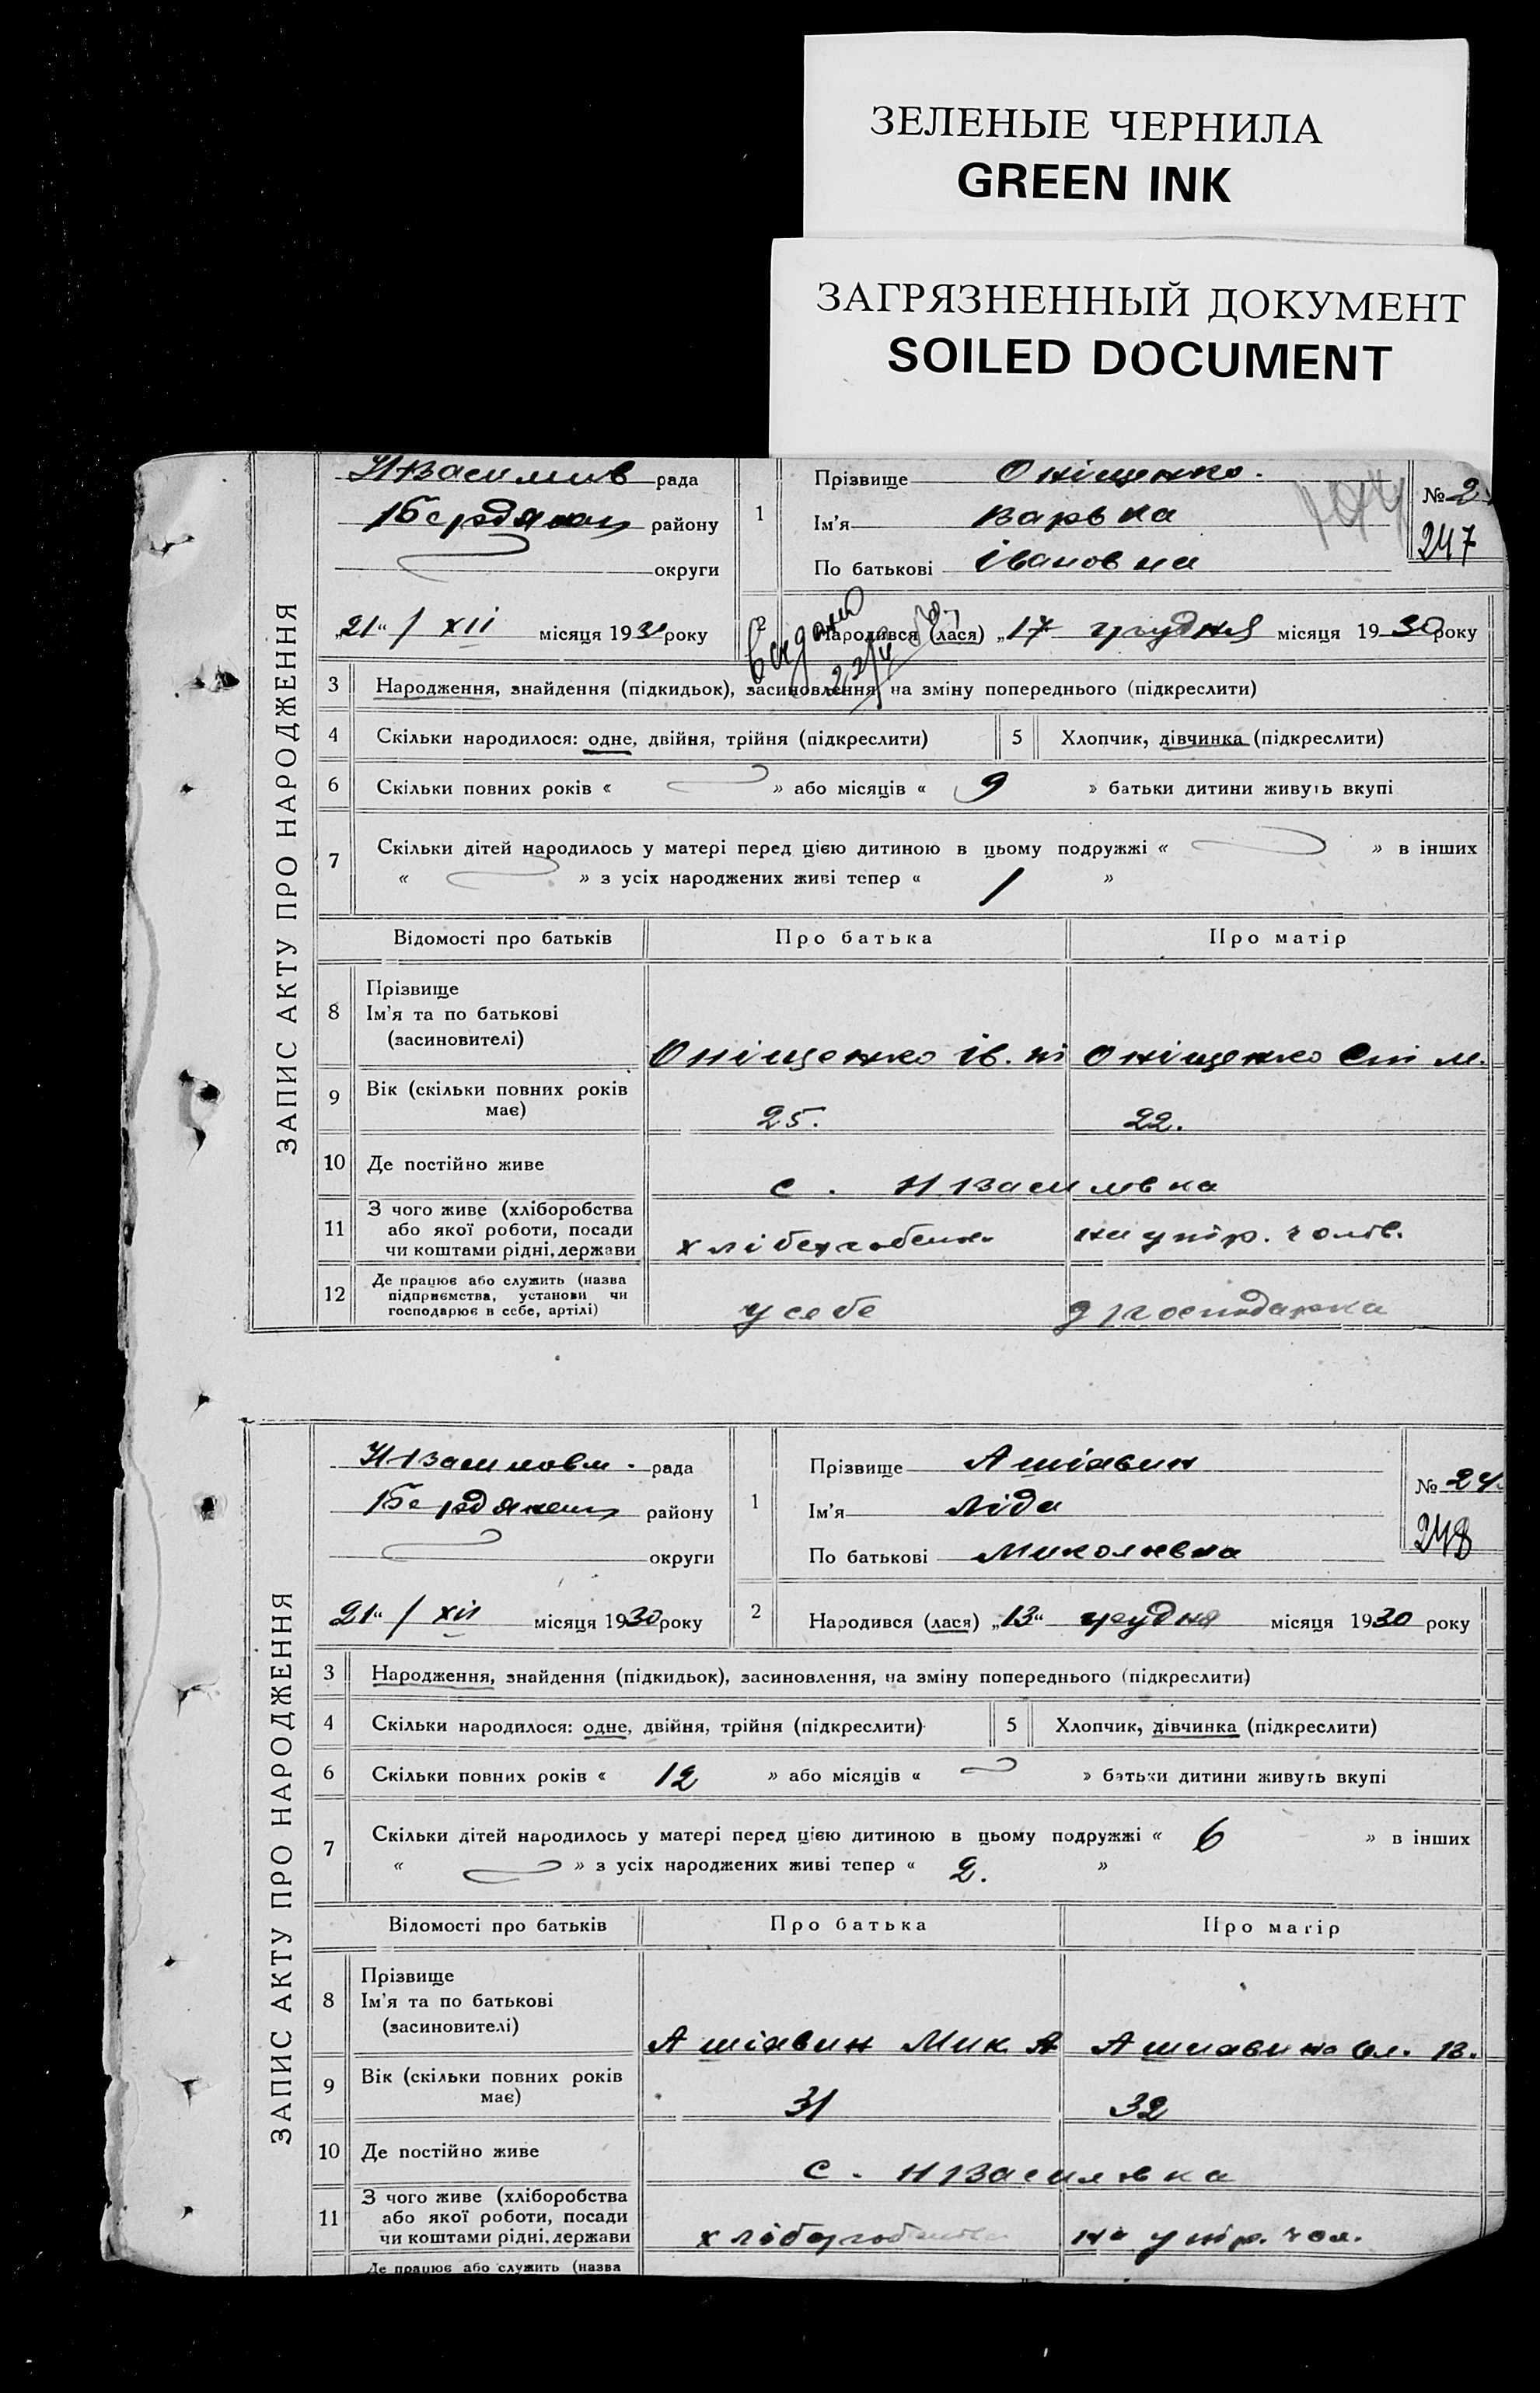 ЗЕЛЕНЫЕ ЧЕРНИЛА
GREEN INK
ЗАГРЯЗНЕННЫЙ ДОКУМЕНТ
SOILED DOCUMENT
ЗАПИС АКТУ ПРО НАРОДЖЕННЯ
рада
району
округи
„21“ / XII місяця 1930 року
1
Прізвище Оніщенко.
Ім'я Варвка
По батькові Івановна
№ 2
247
2
Народився (лася) „17 грудня місяця 1930 року
3 Народження, знайдення (підкидьок), засиновлення, на зміну попереднього (підкреслити)
4 Скільки народилося: одне, двійня, трійня (підкреслити) 5 Хлопчик, дівчинка (підкреслити)
6 Скільки повних років « » або місяців « 9 » батьки дитини живуть вкупі
7 Скільки дітей народилось у матері перед цією дитиною в цьому подружжі « » в інших
« » з усіх народжених живі тепер « 1 »
Відомості про батьків Про батька Про матір
8 Прізвище
Ім'я та по батькові
(засиновителі)
Оніщенко Ів. Оніщенко М.
9 Вік (скільки повних років
має) 25. 22.
10 Де постійно живе с. Н Василівка
11 З чого живе (хліборобства
або якої роботи, посади
чи коштами рідні, держави
на утр. чолв.
12 Де працює або служить (назва
підприємства, установи чи
господарює в себе, артілі)
у себе д господарка
ЗАПИС АКТУ ПРО НАРОДЖЕННЯ
рада
району
округи
21“ / XII місяця 1930 року
1
Прізвище Ашіхвин
Ім'я Ліда
По батькові Миколаевна
№ 24
248
2 Народився (лася) „13“ грудня місяця 1930 року
3 Народження, знайдення (підкидьок), засиновлення, на зміну попереднього (підкреслити)
4 Скільки народилося: одне, двійня, трійня (підкреслити) 5 Хлопчик, дівчинка (підкреслити)
6 Скільки повних років « 12 » або місяців « » батьки дитини живуть вкупі
7 Скільки дітей народилось у матері перед цією дитиною в цьому подружжі « 6 » в інших
« » з усіх народжених живі тепер « 2. »
Відомості про батьків Про батька Про матір
8 Прізвище
Ім'я та по батькові
(засиновителі)
Ашіхвин Мик. А В.
9 Вік (скільки повних років
має) 31 32
10 Де постійно живе с. Н Василівка
11 З чого живе (хліборобства
або якої роботи, посади
чи коштами рідні, держави
на утр. чол.
Де працює або служить (назва